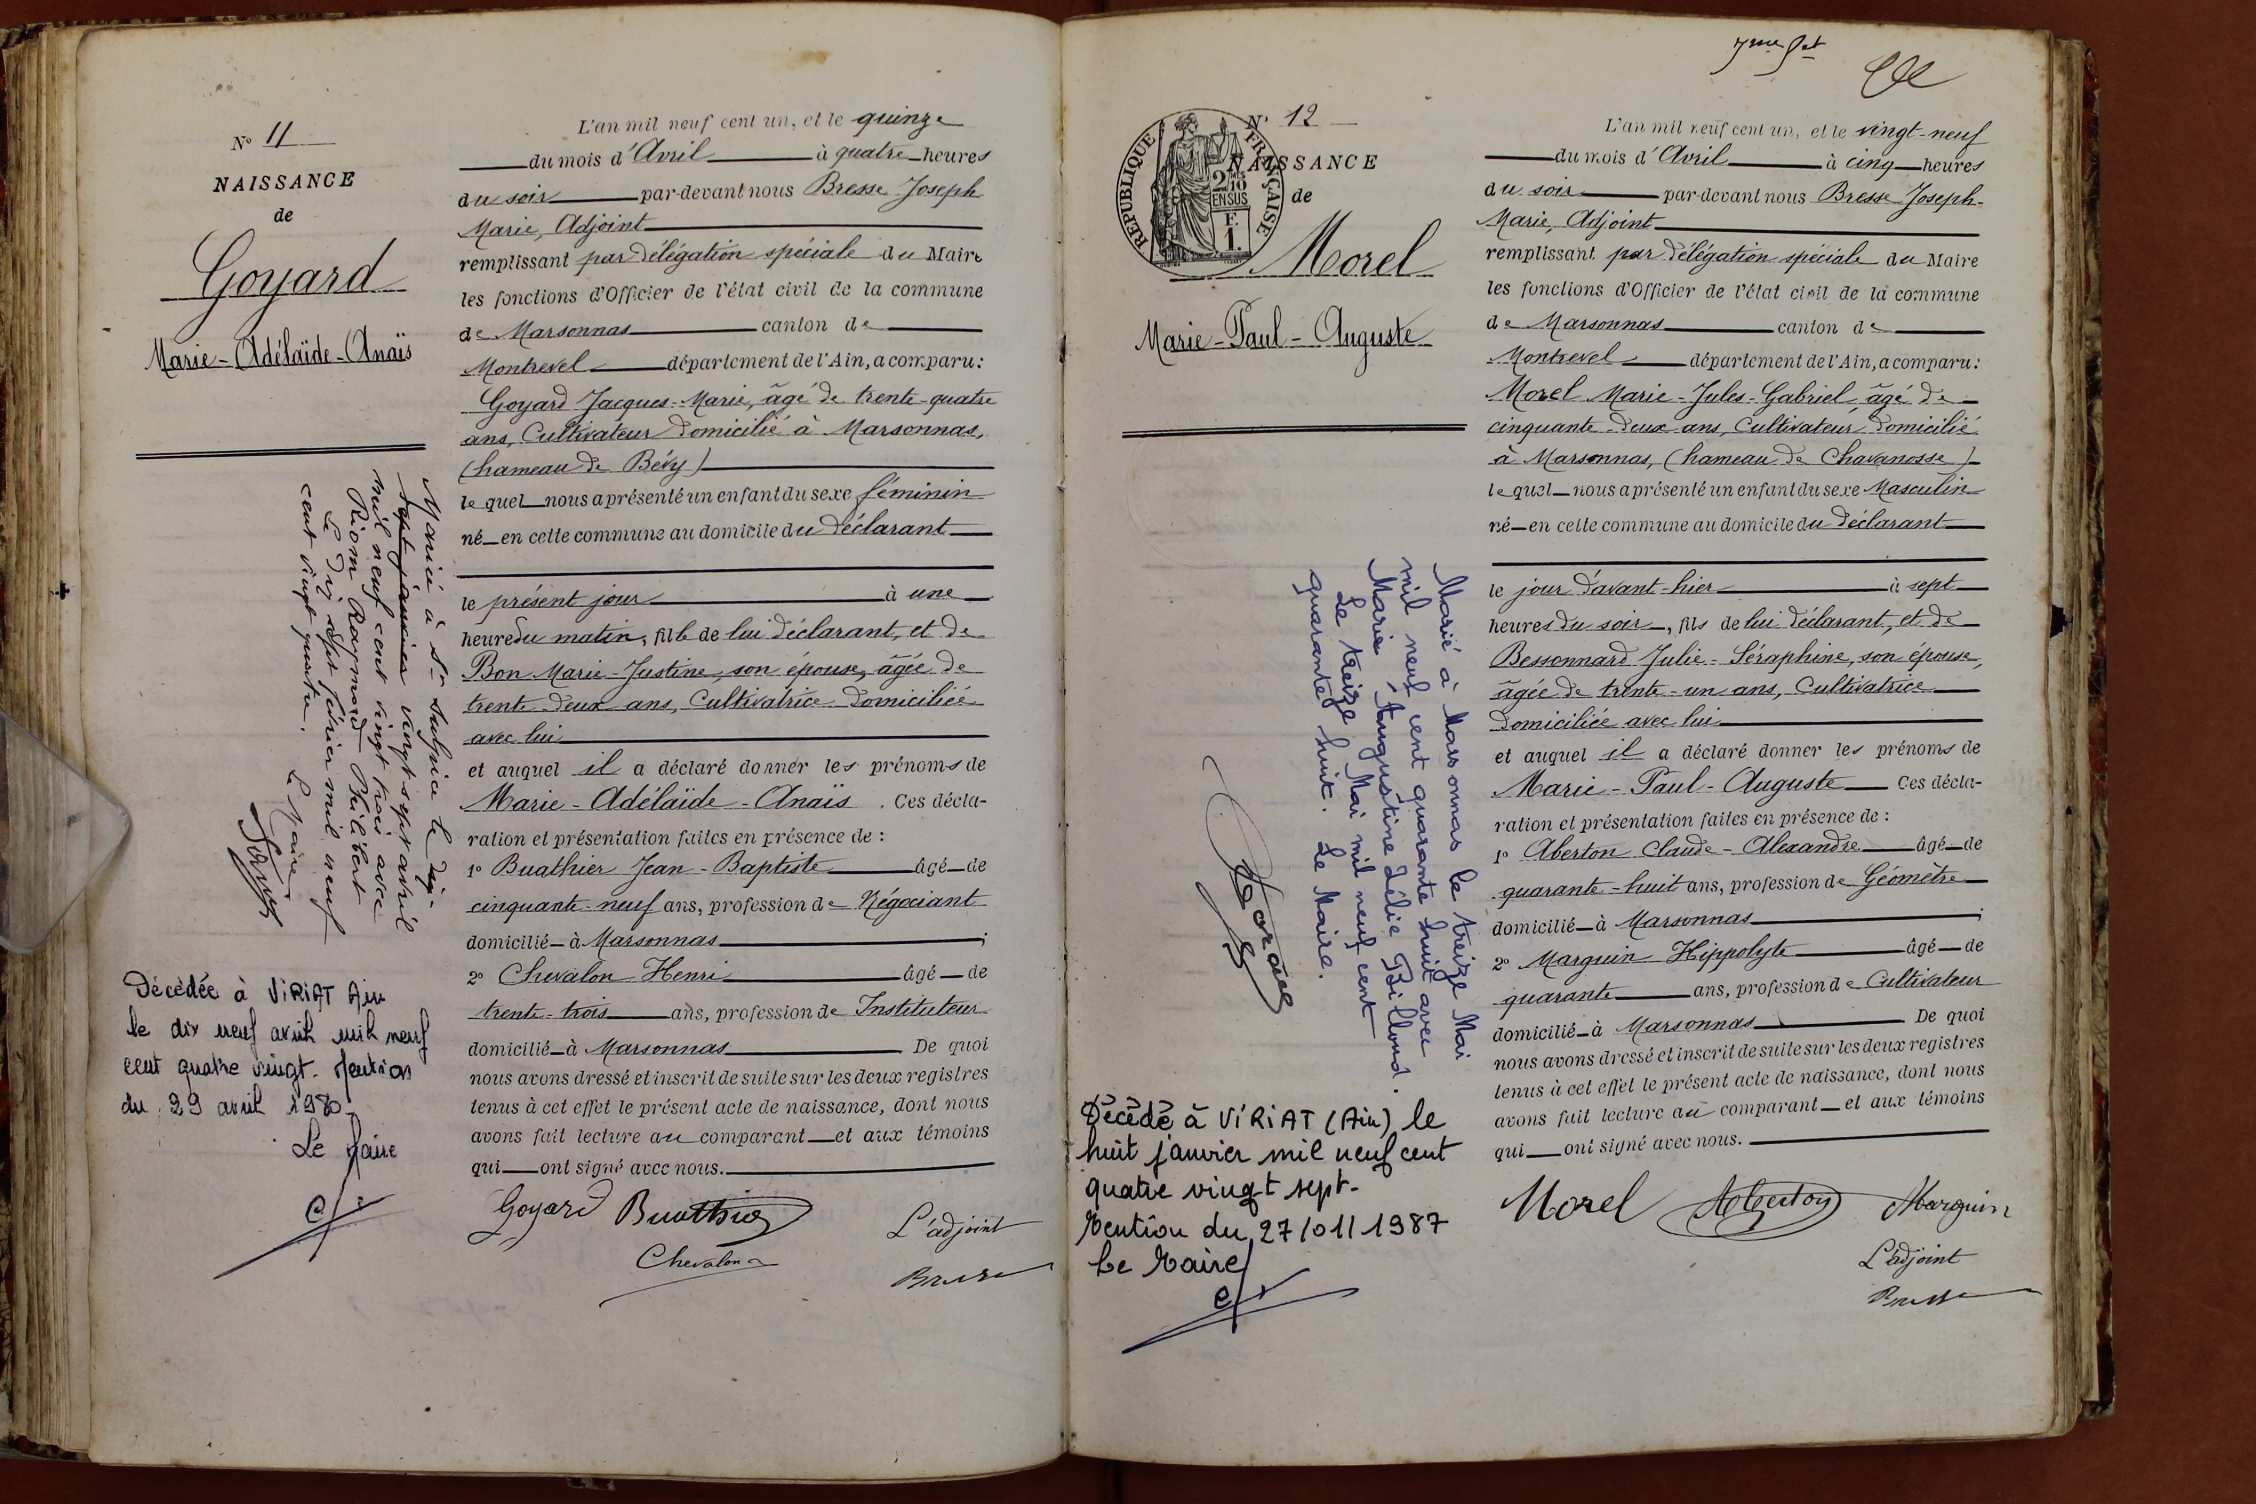 N° 11
NAISSANCE
de
Goyard
Marie-Adélaïde-Anaïs
L'an mil neuf cent un, et le quinze
du mois d'Avril à quatre heures
du soir par-devant nous Bresse Joseph
Marie, Adjoint
remplissant par délégation spéciale du Maire
les fonctions d'Officier de l'état civil de la commune
de Marsonnas canton de
Montrevel département de l'Ain, a comparu:
Goyard Jacques-Marie, âgé de trente-quatre
ans, Cultivateur domicilié à Marsonnas,
(hameau de Bévy)
le quel nous a présenté un enfant du sexe féminin
né en cette commune au domicile du déclarant
le présent jour à une
heure du matin, fille de lui déclarant, et de
Bon Marie-Justine, son épouse, âgée de
trente-deux ans, Cultivatrice domiciliée
avec lui
et auquel il a déclaré donner les prénoms de
Marie-Adélaïde-Anaïs. Ces décla-
ration et présentation faites en présence de :
1° Buathier Jean-Baptiste âgé de
cinquante-neuf ans, profession de Négociant
domicilié à Marsonnas ;
2° Chevalon Henri âgé de
trente-trois ans, profession de Instituteur
domicilié à Marsonnas De quoi
nous avons dressé et inscrit de suite sur les deux registres
tenus à cet effet le présent acte de naissance, dont nous
avons fait lecture au comparant et aux témoins
qui ont signé avec nous.
Goyard Buathier
Chevalon
L'adjoint
Bresse
Marié à St Sulpice le dix-
sept janvier vingt sept avril
mil neuf cent vingt trois avec
Riom Raymond Philibert
Le dix sept février mil neuf
cent vingt quatre.
Le Maire
Décédée à VIRIAT Ain
le dix neuf avril mil neuf
cent quatre vingt. Mention
du 29 avril 1980
Le Maire
7me fet
N° 12
NAISSANCE
de
RÉPUBLIQUE FRANÇAISE
2/10
EN SUS
F.
1.
Morel
Marie-Paul-Auguste
L'an mil neuf cent un, et le vingt-neuf
du mois d'Avril à cinq heures
du soir par-devant nous Bresse Joseph-
Marie, Adjoint
remplissant par délégation spéciale du Maire
les fonctions d'Officier de l'état civil de la commune
de Marsonnas canton de
Montrevel département de l'Ain, a comparu:
Morel Marie-Jules-Gabriel, âgé de
cinquante-deux ans, Cultivateur, domicilié
à Marsonnas, (hameau de Chavanosse)
le quel nous a présenté un enfant du sexe Masculin
né en cette commune au domicile du déclarant
le jour d'avant-hier à sept
heures du soir, fils de lui déclarant, et de
Bessonnard Julie-Séraphine, son épouse,
âgée de trente-un ans, Cultivatrice
domiciliée avec lui
et auquel il a déclaré donner les prénoms de
Marie-Paul-Auguste Ces décla-
ration et présentation faites en présence de :
1° Aberton Claude-Alexandre âgé de
quarante-huit ans, profession de Géomètre
domicilié à Marsonnas ;
2° Marguin Hippolyte âgé de
quarante ans, profession de Cultivateur
domicilié à Marsonnas De quoi
nous avons dressé et inscrit de suite sur les deux registres
tenus à cet effet le présent acte de naissance, dont nous
avons fait lecture au comparant et aux témoins
qui ont signé avec nous.
Morel Aberton Marguin
L'adjoint
Bresse
Marié à Marsonnas le treize Mai
mil neuf cent quarante huit avec
Marie, Augustine Délie Billoud.
Le treize Mai mil neuf cent
quarante huit. Le Maire.
Décédé à VIRIAT (Ain) le
huit janvier mil neuf cent
quatre vingt sept-
Mention du 27/01/1987
Le Maire